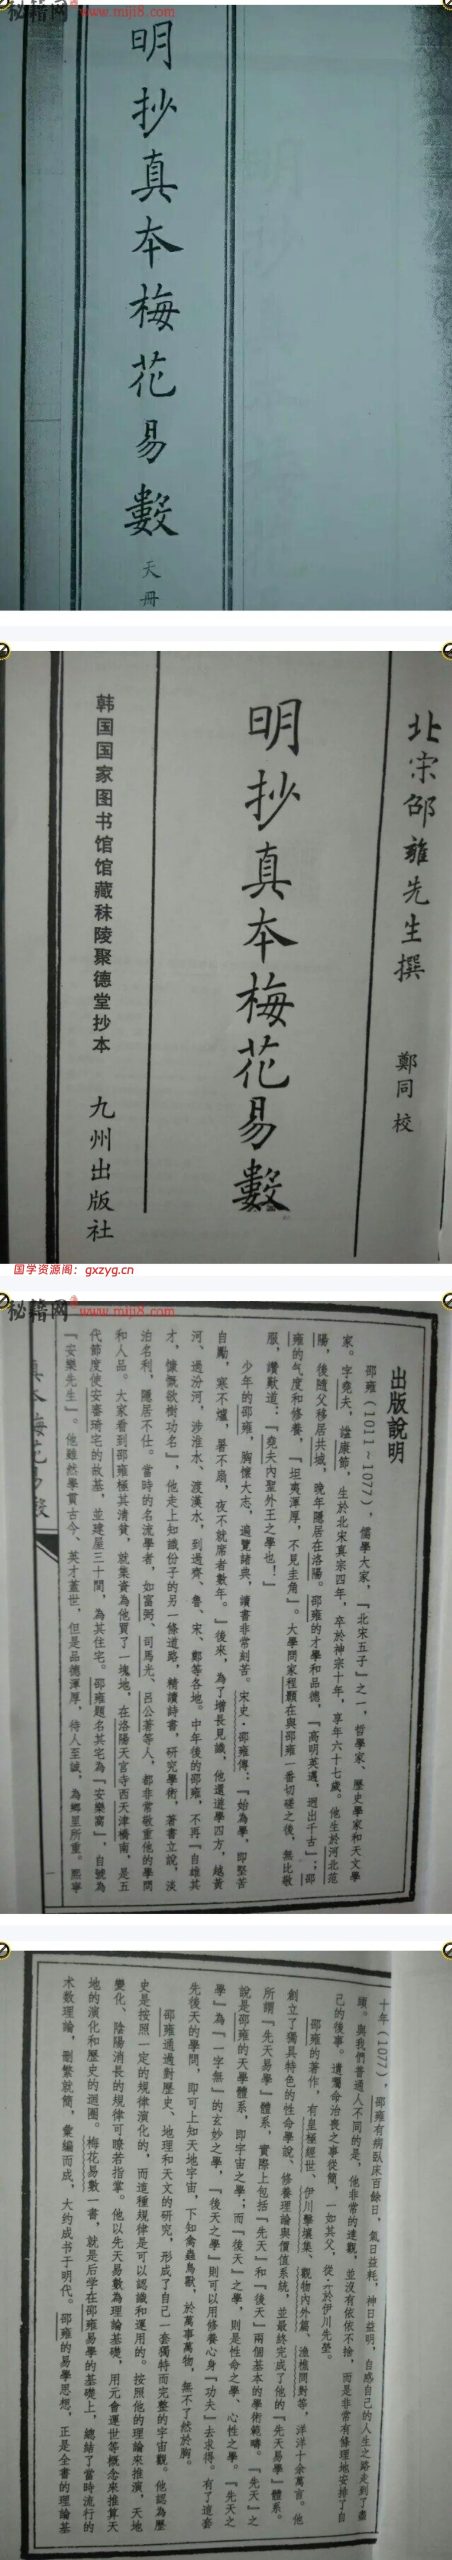 秘籍网 www.miji8.com
明抄真本梅花易數 天冊
北宋邵雍先生撰 鄭同校
明抄真本梅花易數
韩国国家图书馆馆藏秣陵聚德堂抄本 九州出版社
国学资源阁：gxzyg.cn
秘籍网 www.miji8.com
出版說明
邵雍（1011～1077），儒學大家，『北宋五子』之一，哲學家、歷史學家和天文學
家。字堯夫，謚康節，生於北宋真宗四年，卒於神宗十年，享年六十七歲。他生於河北范
陽，後隨父移居共城，晚年隱居在洛陽。邵雍的才學和品德，『高明英邁，迥出千古』；邵
雍的气度和修養，『坦夷渾厚，不見圭角』。大學問家程顥在與邵雍一番切磋之後，無比敬
服，讚歎道：『堯夫內聖外王之學也！』
少年的邵雍，胸懷大志，遍覽諸典，讀書非常刻苦。宋史·邵雍傳：『始為學，即堅苦
自勵，寒不爐，暑不扇，夜不就席者數年。』後來，為了增長見識，他還遊學四方，越黃
河、過汾河，涉淮水、渡漢水，到過齊、魯、宋、鄭等各地。中年後的邵雍，不再『自雄其
才，慷慨欲樹功名』，他走上知識份子的另一條道路，精讀詩書，研究學術，著書立說，淡
泊名利，隱居不仕。當時的名流學者，如富弼、司馬光、呂公著等人，都非常敬重他的學問
和人品。大家看到邵雍極其清貧，就集資為他買了一塊地，在洛陽天宮寺西天津橋南，是五
代節度使安審琦宅的故基，並建屋三十間，為其住宅。邵雍題名其宅為『安樂窩』，自號為
『安樂先生』。他雖然學貫古今、英才蓋世，但是品德渾厚，待人至誠，為鄉里所重。熙寧
真本梅花易數
一
十年（1077），邵雍有病臥床百餘日，氣日益耗，神日益明，自感自己的人生之路走到了盡
頭。與我們普通人不同的是，他非常的達觀，並沒有依依不捨，而是非常有條理地安排了自
己的後事。遺囑命治喪之事從簡，一如其父，從葬於伊川先塋。
邵雍的著作，有皇極經世、伊川擊壤集、觀物內外篇、漁樵問對等，洋洋十余萬言。他
創立了獨具特色的性命學說、修養理論與價值系統，並最終完成了他的『先天易學』體系。
所謂『先天易學』體系，實際上包括『先天』和『後天』兩個基本的學術範疇。『先天』之
說是邵雍的天學體系，即宇宙之學；而『後天』之學，則是性命之學、心性之學。『先天之
學』為『一字無』的玄妙之學，『後天之學』則可以用修養心身『功夫』去求得。有了這套
先後天的學問，即可上知天地宇宙，下知禽蟲鳥獸，於萬事萬物，無不了然於胸。
邵雍通過對歷史、地理和天文的研究，形成了自己一套獨特而完整的宇宙觀。他認為歷
史是按照一定的規律演化的，而這種規律是可以認識和運用的。按照他的理論來推演，天地
變化、陰陽消長的規律可瞭若指掌。他以先天易數為理論基礎，用元會運世等概念來推算天
地的演化和歷史的迴圈。梅花易數一書，就是后学在邵雍易學的基礎上，總結了當時流行的
术数理論，刪繁就簡，彙編而成，大约成书于明代。邵雍的易學思想，正是全書的理論基